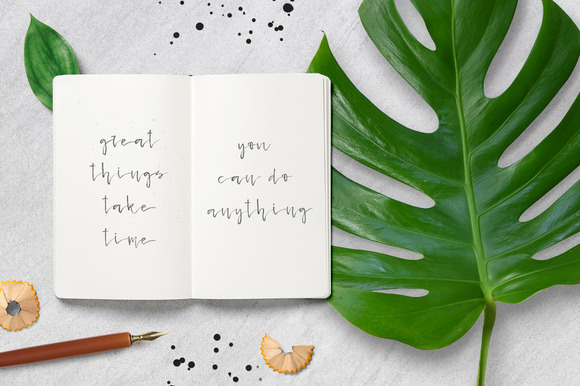 great
things
take
time
you
can do
anything